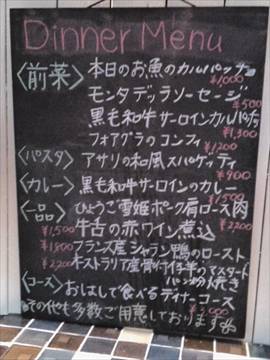 Dinner Menu
〈前菜〉本日のお魚のカルパッチョ
¥1,000
モンタデッラソーセージ
¥500
黒毛和牛サーロインカルパッチョ
¥1,300
フォアグラのコンフィ
¥1,200
〈パスタ〉アサリの和風スパゲッティ
¥900
〈カレー〉黒毛和牛サーロインのカレー
¥1,500
〈一品〉ひょうご雪姫ポーク肩ロース肉
¥2,200
¥1,500 牛舌の赤ワイン煮込
¥1,800 フランス産シャラン鴨のロースト
¥2,200 オーストラリア産骨付仔羊のマスタード
パン粉焼き
〈コース〉おはしで食べるディナーコース
¥3,000
その他も多数ご用意しております